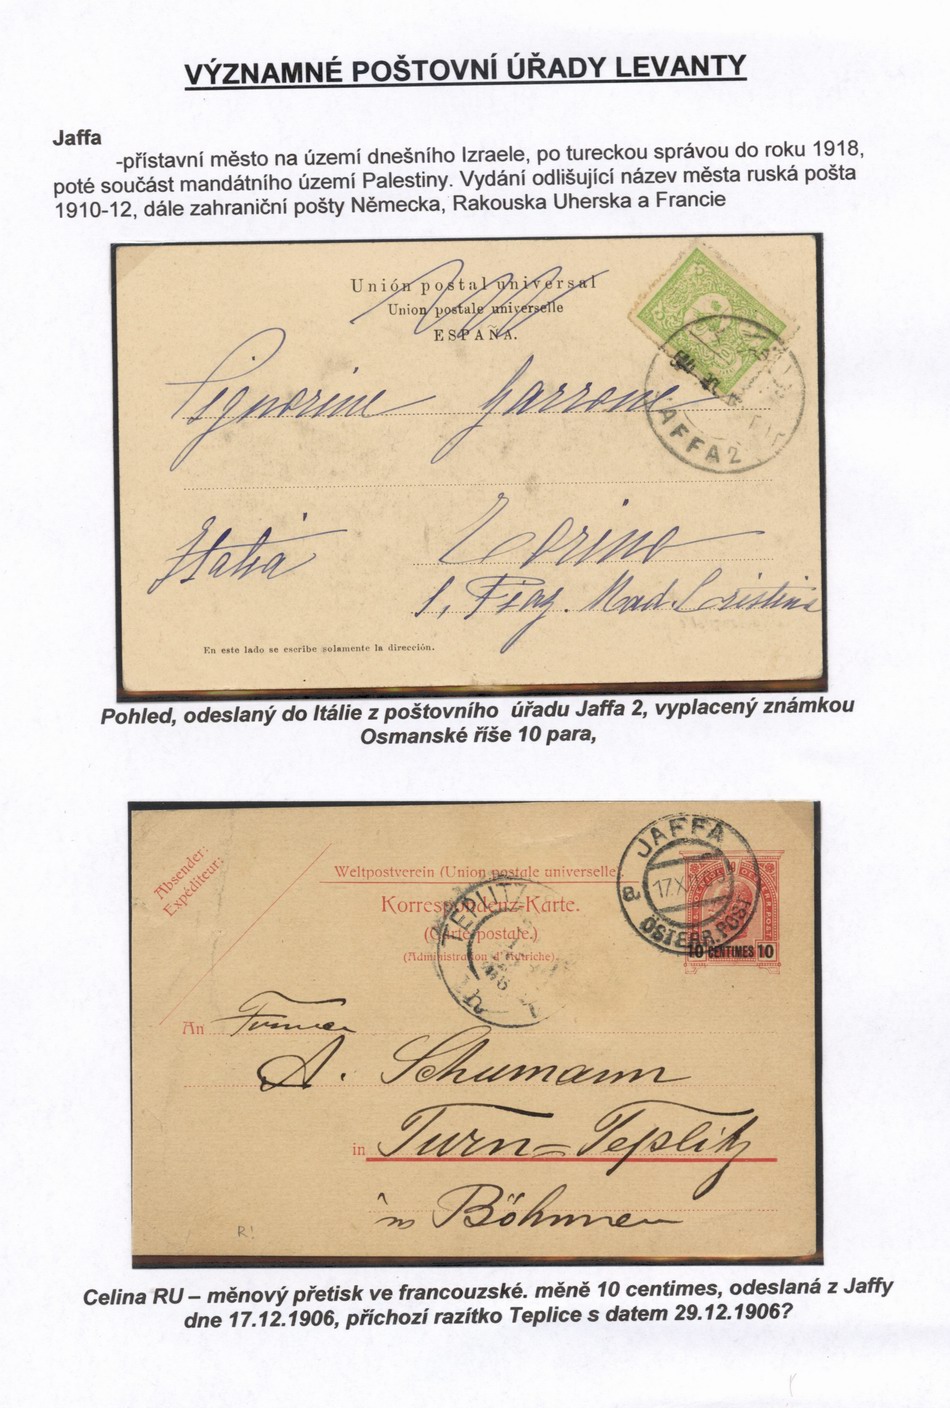 VÝZNAMNÉ POŠTOVNÍ ÚŘADY LEVANTY
Jaffa
-přístavní město na území dnešního Izraele, po tureckou správou do roku 1918,
poté součást mandátního území Palestiny. Vydání odlišující název města ruská pošta
1910-12, dále zahraniční pošty Německa, Rakouska Uherska a Francie
Unión postal universal
Union postale universelle
ESPAÑA.
JAFFA 2
Signorine Garrone
Italia Torino
1, Piaz. Mad. Cristina
En este lado se escribe solamente la dirección.
Pohled, odeslaný do Itálie z poštovního úřadu Jaffa 2, vyplacený známkou
Osmanské říše 10 para,
Absender:
Expéditeur:
JAFFA
a
ÖSTERR. POST
10 CENTIMES 10
Weltpostverein (Union postale universelle
Korrespondenz-Karte.
(Carte postale.)
(Administration d'Autriche).
TEPLITZ
An
A. Schumann
in Turn-Teplitz
in Böhmen
R!
Celina RU – měnový přetisk ve francouzské. měně 10 centimes, odeslaná z Jaffy
dne 17.12.1906, příchozí razítko Teplice s datem 29.12.1906?